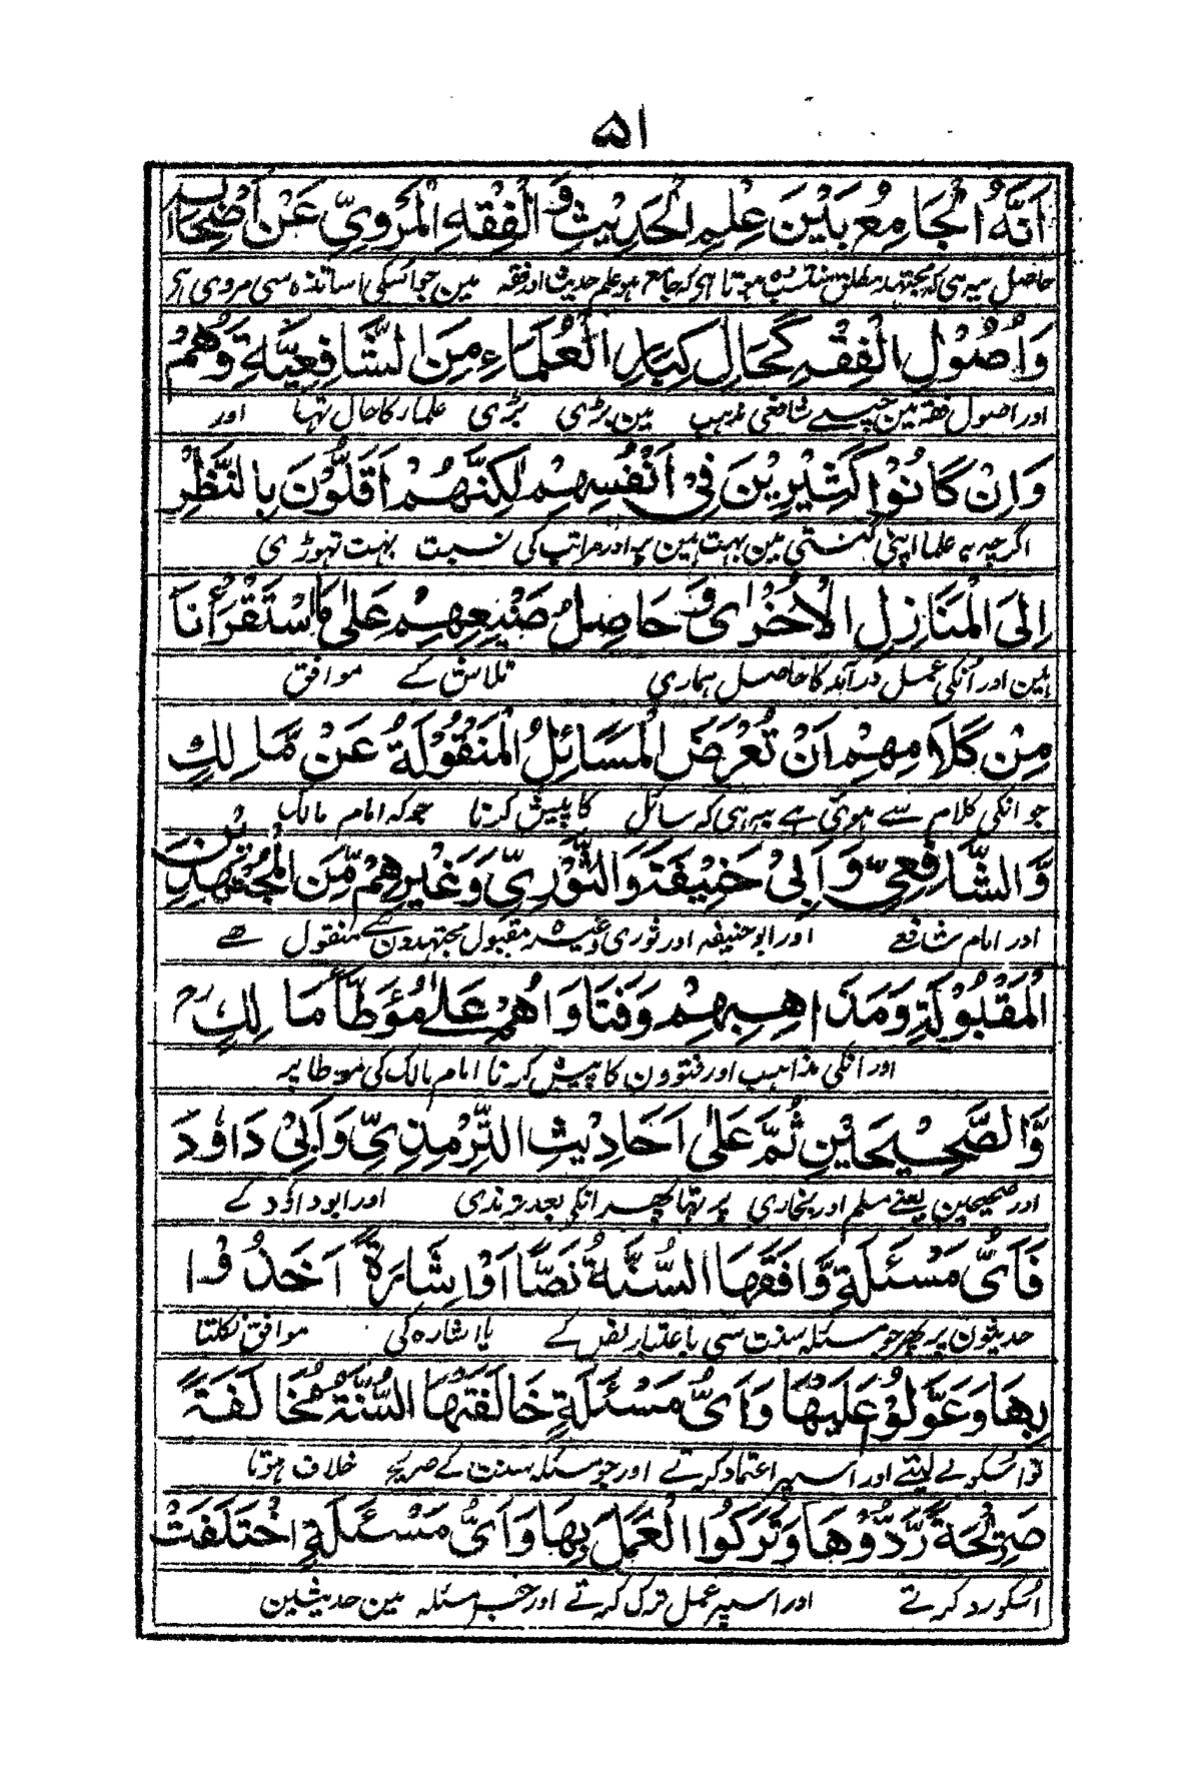 ۵۱
اَنَّهُ الْجَامِعُ بَيْنَ عِلْمِ الْحَدِيْثِ وَ الْفِقْهِ الْمَرْوِيِّ عَنْ اَصْحَابِهٖ
حاصل یہ ہی کہ مجتہد مطلق منتسب وہ ہوتا ہی کہ جامع ہو علم حدیث اور فقہ مین جو اسکی اساتذہ سی مروی ہی
وَ اُصُوْلِ الْفِقْهِ كَحَالِ كِبَارِ الْعُلَمَاءِ مِنَ الشَّافِعِيَّةِ وَهُمْ
اور اصول فقہ مین جیسے شافعی مذہب مین بڑی بڑی علمار کا حال تہا اور
وَ اِنْ كَانُوْا كَثِيْرِيْنَ فِيْ اَنْفُسِهِمْ لٰكِنَّهُمْ اَقَلُّوْنَ بِالنَّظَرِ
اگرچہ یہ علما اپنی گنتی مین بہت ہین پر اور مراتب کی نسبت بہت تہوڑی
اِلَى الْمَنَازِلِ الْاُخْرٰى وَ حَاصِلُ صَنِيْعِهِمْ عَلٰى مَا اسْتَقْرَأْنَا
ہین اور انکی عمل درآمد کا حاصل ہماری تلاش کے موافق
مِنْ كَلَامِهِمْ اَنْ تُعْرَضَ الْمَسَائِلُ الْمَنْقُوْلَةُ عَنْ مَالِكٍ
جو انکی کلام سے ہوئی ہے یہہ ہی کہ مسائل کا پیش کرنا جو کہ امام مالک
وَّ الشَّافِعِيِّ وَ اَبِيْ حَنِيْفَةَ وَ الثَّوْرِيِّ وَ غَيْرِهِمْ مِّنَ الْمُجْتَهِدِيْنَ
اور امام شافعے اور ابو حنیفہ اور ثوری وغیرہ مقبول مجتہدون سے منقول ہے
الْمَقْبُوْلَةِ وَ مَذَاهِبِهِمْ وَ فَتَاوَاهُمْ عَلٰى مُؤَطَّأ مَالِكٍ رح
اور انکی مذاہب اور فتوون کا پیش کرنا امام مالک کی موطا پر
وَّ الصَّحِيْحَيْنِ ثُمَّ عَلٰى اَحَادِيْثِ التِّرْمِذِيِّ وَ اَبِيْ دَاوٗدَ
اور صحیحین یعنے مسلم اور بخاری پر تہا پھر انکی بعد ترمذی اور ابو داؤد کے
فَاَيُّ مَسْئَلَةٍ وَّافَقَهَا السُّنَّةُ نَصًّا اَوْ اِشَارَةً اَخَذُوْا
حدیثون پر پھر جو مسئلہ سنت سی باعتبار نص کے یا اشارہ کی موافق نکلتا
بِهَا وَ عَوَّلُوْ عَلَيْهَا وَ اَيُّ مَسْئَلَةٍ خَالَفَتْهَا السُّنَّةُ مُخَالَفَةً
تو اسکو لے لیتے اور اسپر اعتماد کرتے اور جو مسئلہ سنت کے صریح خلاف ہوتا
صَرِيْحَةً رَّدُّوْهَا وَ تَرَكُوا الْعَمَلَ بِهَا وَ اَيُّ مَسْئَلَةٍ اخْتَلَفَتْ
اسکو رد کرتے اور اسپر عمل ترک کرتے اور جس مسئلہ مین حدیثین